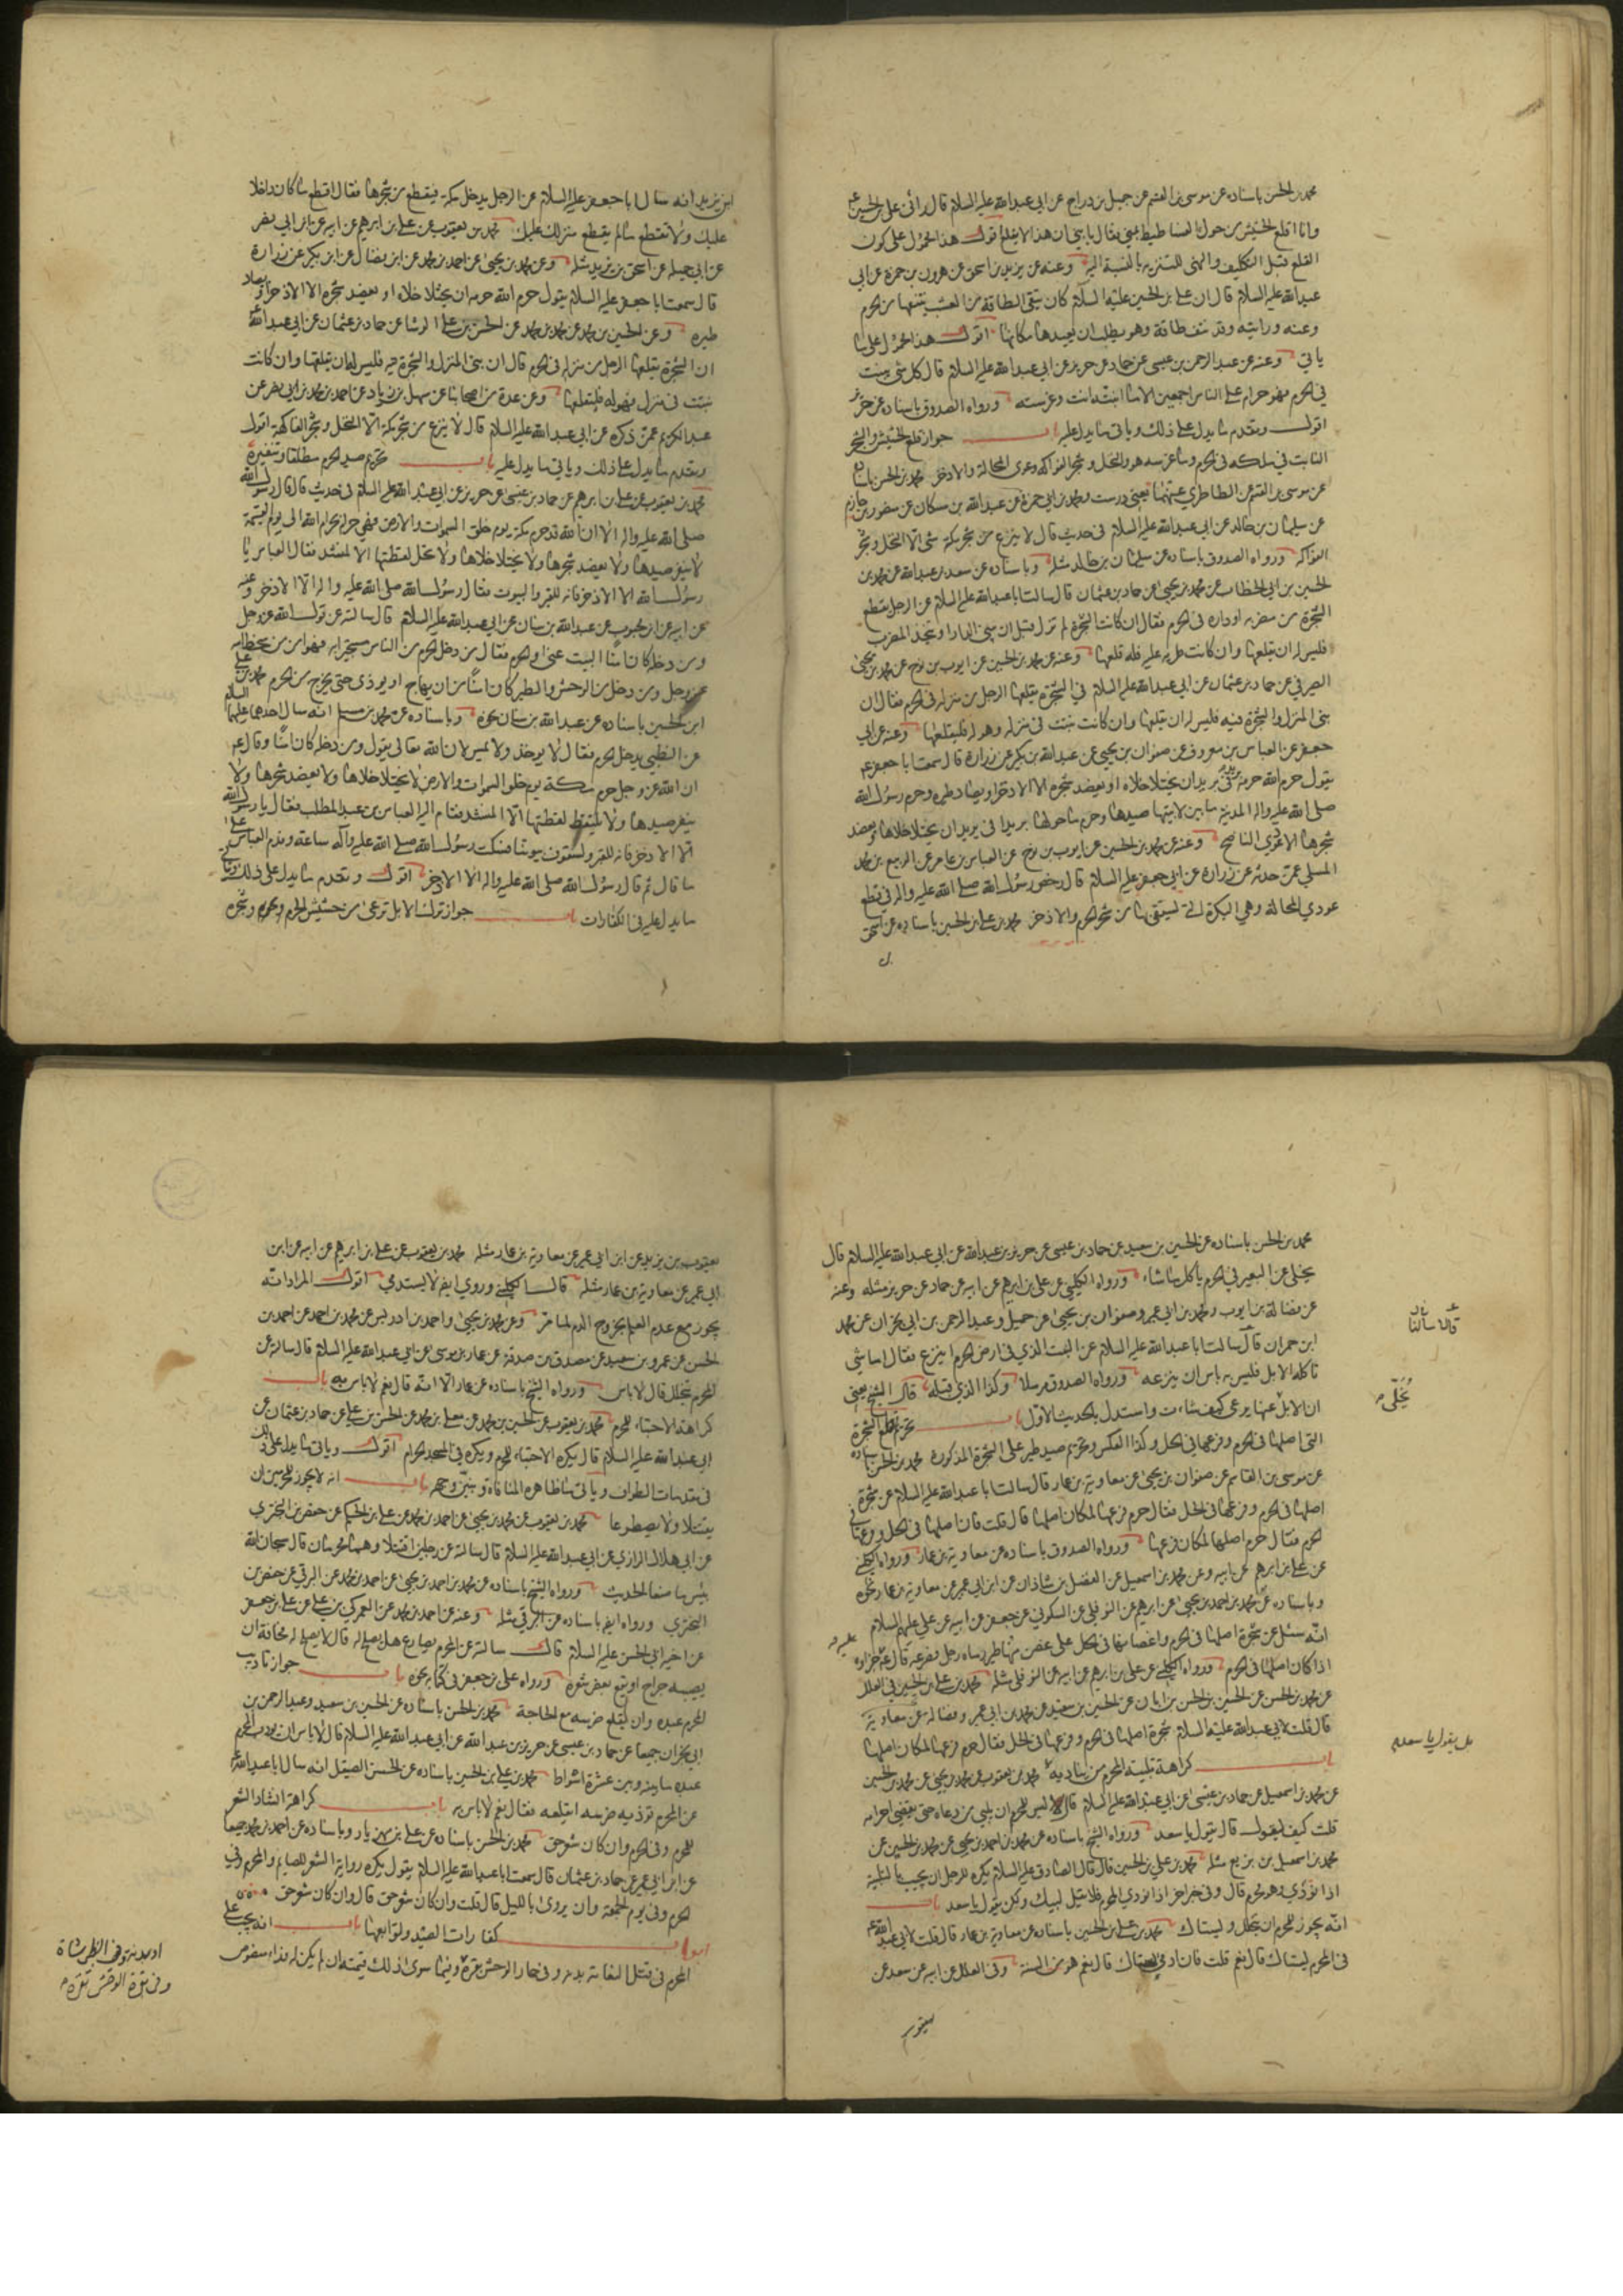 محمد بن الحسن باسناده عن موسى بن القسم عن جميل بن دراج عن ابي عبدالله عليه السلام قال رآني علي بن الحسين ع
وانا اقلع الحشيش من حول الفساطيط بمنى فقال يا بني ان هذا لا يقلع اقول هذا محمول على كون
القلع قبل التكليف والنهي للتنزيه بالنسبة اليه وعنه عن يزيد بن اسحق عن هرون بن حمزة عن ابي
عبدالله عليه السلام قال ان علي بن الحسين عليه السلام كان يتقي الطاقة من العشب ينتفها من الحرم
وعنه ورايته وقد نتف طاقة وهو يطلب ان يعيدها مكانها اقول هذا محمول على ما
ياتي وعنه عن عبدالرحمن عن حماد عن حريز عن ابي عبدالله عليه السلام قال كل شئ ينبت
في الحرم فهو حرام على الناس اجمعين الا ما انبته انت وغرسته ورواه الصدوق باسناده عن حريز
اقول وتقدم ما يدل على ذلك وياتي ما يدل عليه باب جواز قلع الحشيش والشجر
النابت في ملكه في الحرم وما غرسه هو والنخل وشجر الفواكه وعودي المحالة والاذخر محمد بن الحسن باسناده
عن موسى بن القسم عن الطاطري عنهما يعني درست ومحمد بن ابي حمزة عن عبدالله بن مسكان عن منصور بن حازم
عن سليمان بن خالد عن ابي عبدالله عليه السلام في حديث قال لا ينزع من شجر مكة شئ الا النخل وشجر
الفواكه ورواه الصدوق باسناده عن سليمان بن خالد مثله وباسناده عن سعد بن عبدالله عن محمد بن
الحسين بن ابي الخطاب عن محمد بن يحيى عن حماد بن عثمان قال سالت ابا عبدالله عليه السلام عن الرجل يقطع
الشجرة من مضربه او داره في الحرم فقال ان كانت الشجرة لم تزل قبل ان يبني الدار او يتخذ المضرب
فليس له ان يقلعها وان كانت طرية عليه فله قلعها وعنه عن محمد بن الحسين عن ايوب بن نوح عن محمد بن يحيى
الصيرفي عن حماد بن عثمان عن ابي عبدالله عليه السلام في الشجرة يقلعها الرجل من منزله في الحرم فقال ان
بنى المنزل والشجرة فيه فليس له ان يقلعها وان كانت نبتت في منزله وهو له فليقلعها وعنه عن ابي
جعفر عن العباس بن معروف عن صفوان بن يحيى عن عبدالله بن بكير عن زرارة قال سمعت ابا جعفر ع
يقول حرم الله حرمه بريدا في بريد ان يختلا خلاه او يعضد شجره الا الاذخر او يصاد طيره وحرم رسول الله
صلى الله عليه واله المدينة ما بين لابتيها صيدها وحرم ما حولها بريدا في بريد ان يختلا خلاها او يعضد
شجرها الا عودي الناضح وعنه عن محمد بن الحسين عن ايوب بن نوح عن العباس بن عامر عن الربيع بن محمد
المسلي عمن حدثه عن زرارة عن ابي جعفر عليه السلام قال رخص رسول الله صلى الله عليه واله في قطع
عودي المحالة وهي البكرة التي يستقى بها من شجر الحرم والاذخر محمد بن علي بن الحسين باسناده عن اسحق
ابن يزيد انه سال ابا جعفر عليه السلام عن الرجل يدخل مكة فيقطع من شجرها فقال اقطع ما كان داخلا
عليك ولا تقطع ما لم يدخل منزلك عليك محمد بن يعقوب عن علي بن ابرهيم عن ابيه عن ابن ابي نصر
عن ابي جميلة عن اسحق بن يزيد مثله وعن محمد بن يحيى عن احمد بن محمد عن ابن فضال عن ابن بكير عن زرارة
قال سمعت ابا جعفر عليه السلام يقول حرم الله حرمه ان يختلا خلاه او يعضد شجره الا الاذخر او يصاد
طيره وعن الحسين بن محمد عن معلى بن محمد عن الحسن بن علي الوشا عن حماد بن عثمان عن ابي عبدالله ع
ان الشجرة يقلعها الرجل من منزله في الحرم قال ان بنى المنزل والشجرة فيه فليس له ان يقلعها وان كانت
نبتت في منزله وهو له فليقلعها وعن عدة من اصحابنا عن سهل بن زياد عن احمد بن محمد بن ابي نصر عن
عبدالكريم عمن ذكره عن ابي عبدالله عليه السلام قال لا ينزع من شجر مكة الا النخل وشجر الفاكهة اقول
وتقدم ما يدل على ذلك وياتي ما يدل عليه باب تحريم صيد الحرم مطلقا وتنفيره
محمد بن يعقوب عن علي بن ابرهيم عن حماد بن عيسى عن حريز عن ابي عبدالله عليه السلام في حديث قال قال رسول الله
صلى الله عليه واله الا ان الله قد حرم مكة يوم خلق السموات والارض فهي حرام بحرام الله الى يوم القيمة
لا ينفر صيدها ولا يعضد شجرها ولا يختلا خلاها ولا تحل لقطتها الا لمنشد فقال العباس يا
رسول الله الا الاذخر فانه للقبر والبيوت فقال رسول الله صلى الله عليه واله الا الاذخر وعنه
عن ابيه عن ابن محبوب عن عبدالله بن سنان عن ابي عبدالله عليه السلام قال سالته عن قول الله عز وجل
ومن دخله كان امنا البيت عنى او الحرم فقال من دخل الحرم من الناس مستجيرا به فهو امن من سخط الله
عز وجل ومن دخل من الوحش والطير كان امنا من ان يهاج او يوذى حتى يخرج من الحرم محمد بن علي
ابن الحسين باسناده عن عبدالله بن سنان نحوه وباسناده عن محمد بن مسلم انه سال احدهما عليهما السلام
عن الظبي يدخل الحرم فقال لا يوخذ ولا يمس لان الله تعالى يقول ومن دخله كان امنا وقال ع
ان الله عز وجل حرم مكة يوم خلق السموات والارض لا يختلا خلاها ولا يعضد شجرها ولا
ينفر صيدها ولا يلتقط لقطتها الا المنشد فقام اليه العباس بن عبدالمطلب فقال يا رسول الله
الا الاذخر فانه للقبر ولسقوف بيوتنا فسكت رسول الله صلى الله عليه وآله ساعة وندم العباس على
ما قال ثم قال رسول الله صلى الله عليه واله الا الاذخر اقول وتقدم ما يدل على ذلك وياتي
ما يدل عليه في الكفارات باب جواز ترك الابل ترعى من حشيش الحرم وشجره
محمد بن الحسن باسناده عن الحسين بن سعيد عن حماد بن عيسى عن حريز بن عبدالله عن ابي عبدالله عليه السلام قال
يخلى عن البعير في الحرم ياكل ما شاء ورواه الكليني عن علي بن ابرهيم عن ابيه عن حماد عن حريز مثله وعنه
عن فضالة بن ايوب ومحمد بن ابي عمير وصفوان بن يحيى عن جميل وعبدالرحمن بن ابي نجران عن محمد
ابن حمران قال سالت ابا عبدالله عليه السلام عن النبت الذي في ارض الحرم اينزع فقال اما شئ
تاكله الابل فليس به باس ان ينزعه ورواه الصدوق مرسلا وكذا الذي قبله قال الشيخ يعني
ان الابل عنها يرعى كيف شاءت واستدل بالحديث الاول باب تحريم قلع الشجرة
التي اصلها في الحرم وفرعها في الحل وكذا العكس وتحريم صيد طير على الشجرة المذكورة محمد بن الحسن باسناده
عن موسى بن القاسم عن صفوان بن يحيى عن معاوية بن عمار قال سالت ابا عبدالله عليه السلام عن شجرة
اصلها في الحرم وفرعها في الحل فقال حرم فرعها لمكان اصلها قال قلت فان اصلها في الحل وفرعها في
الحرم فقال حرم اصلها لمكان فرعها ورواه الصدوق باسناده عن معاوية بن عمار ورواه الكليني
عن علي بن ابرهيم عن ابيه وعن محمد بن اسمعيل عن الفضل بن شاذان عن ابن ابي عمير عن معاوية بن عمار نحوه
وباسناده عن محمد بن احمد بن يحيى عن ابرهيم عن النوفلي عن السكوني عن جعفر عن ابيه عن علي عليهم السلام
انه سئل عن شجرة اصلها في الحرم واغصانها في الحل على غصن منها طير رماه رجل فصرعه قال عليه جزاؤه
اذا كان اصلها في الحرم ورواه الكليني عن علي بن ابرهيم عن ابيه عن النوفلي مثله محمد بن علي بن الحسين في العلل
عن محمد بن الحسن عن الحسين بن الحسن بن ابان عن الحسين بن سعيد عن محمد بن ابي عمير وفضالة عن معاوية
قال قلت لابي عبدالله عليه السلام شجرة اصلها في الحرم وفرعها في الحل فقال حرم فرعها لمكان اصلها
باب كراهة تلبية المحرم من يناديه محمد بن يعقوب عن محمد بن يحيى عن محمد بن الحسين
عن محمد بن اسمعيل عن حماد بن عيسى عن ابي عبدالله عليه السلام قال ليس للمحرم ان يلبي من دعاه حتى يقضي احرامه
قلت كيف يقول قال يقول يا سعد ورواه الشيخ باسناده عن محمد بن احمد بن يحيى عن محمد بن الحسين عن
محمد بن اسمعيل بن بزيع مثله محمد بن علي بن الحسين قال قال الصادق عليه السلام يكره للرجل ان يجيب بالتلبية
اذا نودي وهو محرم قال وفي خبر اخر اذا نودي المحرم فلا يقل لبيك ولكن يقول يا سعد باب
انه يجوز للمحرم ان يتخلل ويستاك محمد بن علي بن الحسين باسناده عن معاوية بن عمار قال قلت لابي عبدالله ع
في المحرم يستاك قال نعم قلت فان ادمى يستاك قال نعم هو من السنة وفي العلل عن ابيه عن سعد عن
قالا سالنا
يُخَلّى
بل يقول يا سعد
يعقوب
يعقوب بن يزيد عن ابن ابي عمير عن معاوية بن عمار مثله محمد بن يعقوب عن علي بن ابرهيم عن ابيه عن ابن
ابي عمير عن معاوية بن عمار مثله قال الكليني وروي ايضا لا يستدمي اقول المراد انه
يجوز مع عدم العلم بخروج الدم لما مر وعن محمد بن يحيى واحمد بن ادريس عن محمد بن احمد عن احمد بن
الحسن عن عمرو بن سعيد عن مصدق بن صدقة عن عمار بن موسى عن ابي عبدالله عليه السلام قال سالته عن
المحرم يتخلل قال لا باس ورواه الشيخ باسناده عن عمار الا انه قال نعم لا باس به باب
كراهة الاحتباء للمحرم محمد بن يعقوب عن الحسين بن محمد عن معلى بن محمد عن الحسن بن علي عن حماد بن عثمان عن
ابي عبدالله عليه السلام قال يكره الاحتباء للمحرم ويكره في المسجد الحرام اقول وياتي ما يدل على ذلك
في مقدمات الطواف وياتي ما ظاهره المنافاة ونبين وجهه باب انه لا يجوز للمحرمين ان
يقتتلا ولا يصطرعا محمد بن يعقوب عن محمد بن يحيى عن احمد بن محمد عن علي بن الحكم عن حفص بن البختري
عن ابي هلال الرازي عن ابي عبدالله عليه السلام قال سالته عن رجلين اقتتلا وهما محرمان قال سبحان الله
بئس ما صنعا الحديث ورواه الشيخ باسناده عن محمد بن احمد بن يحيى عن احمد بن محمد عن البرقي عن حفص بن
البختري ورواه ايضا باسناده عن البرقي مثله وعنه عن احمد بن محمد عن العمركي بن علي عن علي بن جعفر
عن اخيه ابي الحسن عليه السلام قال سالته عن المحرم يصارع هل يصلح له قال لا يصلح له مخافة ان
يصيبه جراح او يقع بعض شعره ورواه علي بن جعفر في كتابه نحوه باب جواز تاديب
المحرم عبده وان يقلع ضرسه مع الحاجة محمد بن الحسن باسناده عن الحسين بن سعيد وعبدالرحمن بن
ابي نجران جميعا عن حماد بن عيسى عن حريز بن عبدالله عن ابي عبدالله عليه السلام قال لا باس ان يودب المحرم
عبده ما بينه وبين عشرة اسواط محمد بن علي بن الحسين باسناده عن الحسن الصيقل انه سال ابا عبدالله ع
عن المحرم توذيه ضرسه ايقلعه فقال نعم لا باس به باب كراهة انشاد الشعر
للمحرم وفي الحرم وان كان شعر حق محمد بن الحسن باسناده عن علي بن مهزيار وباسناده عن احمد بن محمد جميعا
عن ابن ابي عمير عن حماد بن عثمان قال سمعت ابا عبدالله عليه السلام يقول يكره رواية الشعر للصايم والمحرم وفي
الحرم وفي يوم الجمعة وان يروى بالليل قال قلت وان كان شعر حق قال وان كان شعر حق
ابواب كفارات الصيد وتوابعها باب انه يجب على
المحرم في قتل النعامة بدنة وفي حمار الوحش بقرة وفيما سوى ذلك قيمته ان لم يكن له فداء منصوص
او بدنة وفي الظبي شاة
وفي بقرة الوحش بقرة